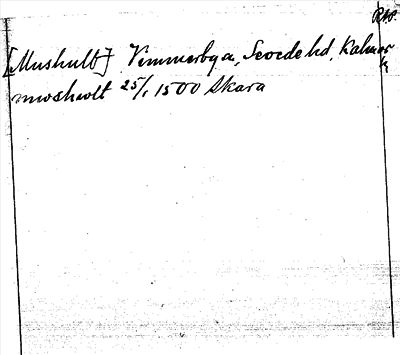 RAP.
[Mushult] Vimmerby a, Sevede hd, Kalmar
mwshwlt 25/1 1500 Skara